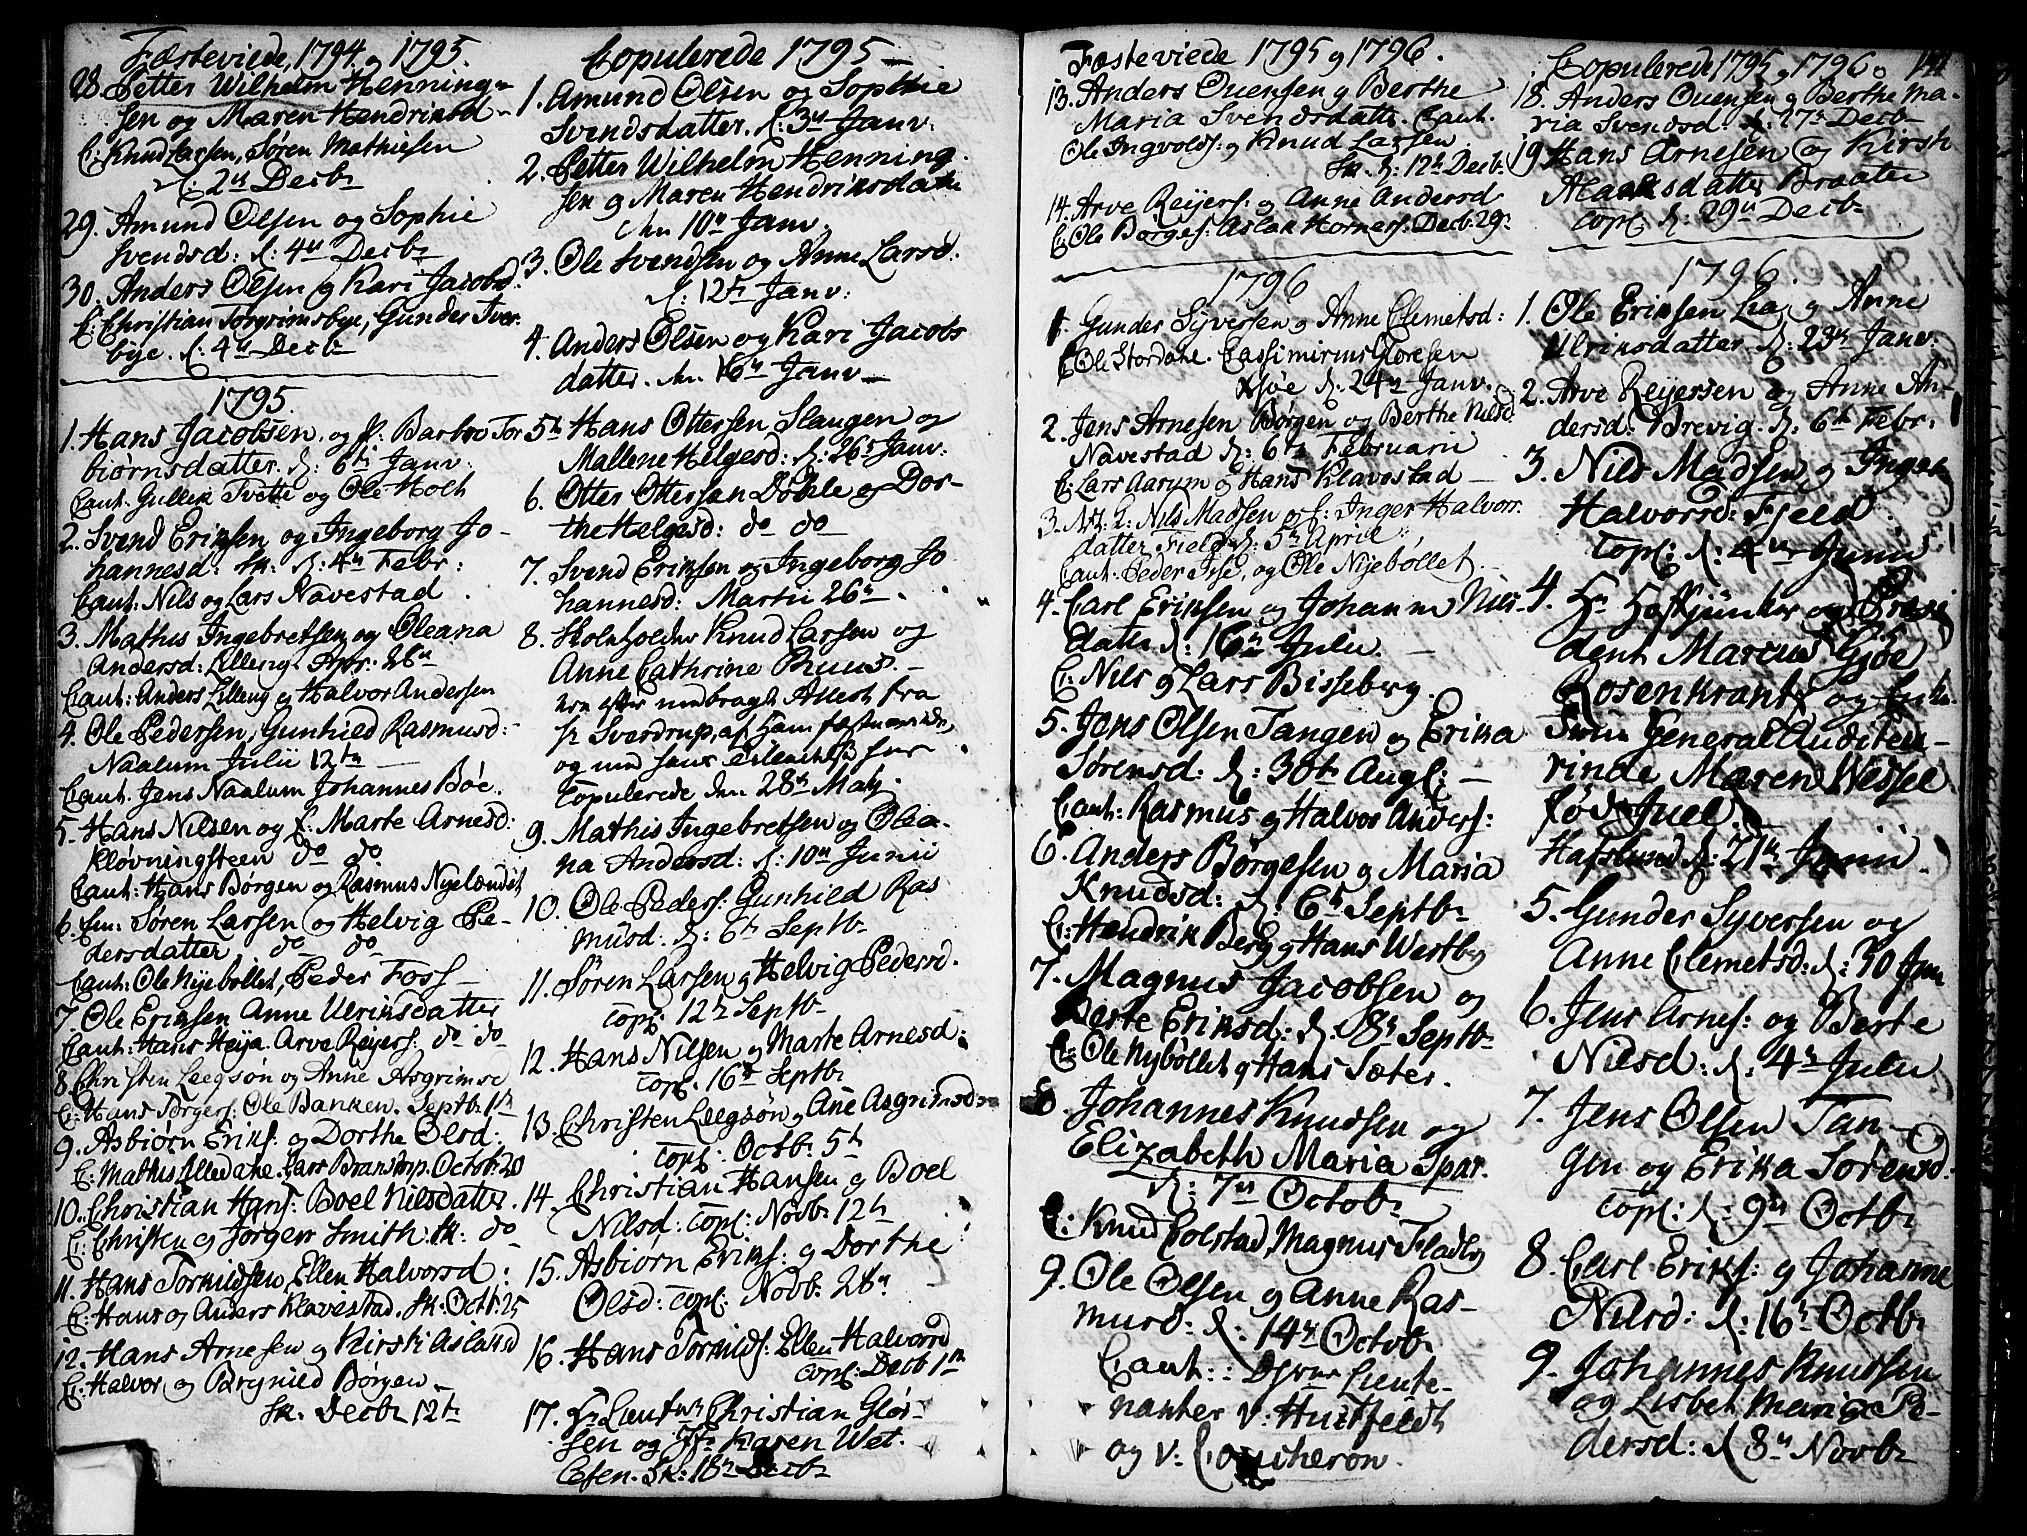 Fæsteviede, 1794 og 1795.
28. Petter Wilhelm Henning-
sen og Maren Hendriksd
C: Knud Larsen, Søren Mathiesen
d: 2n Decbr
29. Amund Olsen og Sophie
Svendsd: d: 4n Decbr
30. Anders Olsen og Kari Jacobsd.
C: Christian Torgrimsbye, Gunder Tver
bye. d: 4n Decbr
1795.
1. Hans Jacobsen, og p: Barbro Tor
biørnsdatter. d: 6te Janv:
Caut: Gullek Tvette og Ole Holt
2. Svend Eriksen og Ingeborg Jo-
hannesd: sk: d: 4n Febr:
Caut: Nils og Lars Navestad
3. Mathis Ingebretsen og Oleana
Andersd: Lilleng Apr: 26n
Caut: Anders Lilleng og Halvor Andersen
4. Ole Pedersen, Gunhild Rasmusd:
Naalum Julii 12te
Caut. Jens Naalum Johannes Bøe.
5. Hans Nilsen og p: Marte Arnesd:
Kløvningsteen do do
Caut: Hans Børgen og Rasmus Nyelændet
6. Søren Larsen og Helvig Pe-
dersdatter do do
Caut: Ole Nyebøllet, Peder Foss
7. Ole Eriksen Anne Ulriksdatter
Caut: Hans Heija. Arve Reijers: do do
8. Christen Leegsøn og Anne Asgrimsd
C: Hans Torgers: Ole Banken. Septbr 1te
9. Asbiørn Eriks: og Dorthe Olsd:
C: Mathis Lilledahe. Lars Branstorp. Octobr: 20
10. Christian Hans: Boel Nilsdatter.
C: Christen og Jørgen Smith. sk: do
11. Hans Tormidsen, Ellen Halvorsd:
C: Hans og Anders Klavestad. sk: Octbr: 25
12. Hans Arnesen og Kirsti Aslaksd
C: Halvor og Brynild Børgen
sk. Decbr 12te
Copulerede 1795
1. Amund Olsen og Sophie
Svendsdatter. d: 3n Janv.
2. Petter Wilhelm Henning.
sen og Maren Hendriksdatte
den 10n Janv.
3. Ole Svendsen og Anne Larsd.
d: 12te Janv:
4. Anders Olsen og Kari Jacobs
datter. den 16n Janv
5te Hans Ottersen Slaugen og
Mallene Helgesd: d: 26n Janv:
6. Otter Ottersen Døhle og Dor-
the Helgesd: do do
7. Svend Eriksen og Ingeborg Jo
hannesd: Martii 26n.
8. Skoleholder Knud Larsen og
Anne Cathrine
efter medbragt Attest fra
Hr Sverdrup, af Ham
og med hans
Copulerede den 28te Maij
9. Mathis Ingebretsen og Olea-
na Andersd: d: 10n Junii
10. Ole Peders: Gunhild Ras
musd. d: 6te Septbr
11. Søren Larsen og Helvig Pedersd.
Copl: 12te Septbr
12. Hans Nilsen og Marte Arnesd:
Copl. 16n Septbr
13. Christen Leegsøn og Ane Asgrimsd:
Copl: Octbr: 5te
14. Christian Hansen og Boel
Nilsd: Copl: Novbr: 12te
15. Asbiørn Eriks: og Dorthe
Olsd: Copl: Novbr: 28n.
16. Hans Tormids: Ellen Halvorsd
Copl: Decbr 1n
17. Hr Lieut Christian Glør-
sen og Jfr Karen Wet.
lesen. Sk: 18n Decbr
Fæsteviede 1795 og 1796.
13. Anders Ovensen og Berthe
Maria Svendsdatte. Caut.
Ole Ingvolds: og Knud Larsen
sk. d: 12te Decbr.
14. Arve Reijers: og Anne Andersd
C: Ole Børges: Aslak Hornes: Decbr: 29n
1796
1. Gunder Syversen og Anne Clemetsd:
C: Ole Stordahe. Cassimirus Gloresen
d: 24n Janv.
2. Jens Arnesen Børgen og Berthe Nilsd.
Navestad d: 6te Februarii
C: Lars Aarum og Hans Klavestad
3. Nils Madsen og p: Inger Halvors
datter Field d: 5te April
Caut: Peder og Ole Nyebøllet
4. Carl Eriksen og Johanne Nils
datte d: 16n Julii
C: Nils og Lars Bisseberg.
5. Jens Olsen Tangen og Erika
Sørensd: d: 30te Aug:
Caut: Rasmus og Halvor Anders:
6. Anders Børgesen og Maria
Knudsd: d: 6te Septbr
C: Hendrik Berg og Hans Westby
7. Magnus Jacobsen og
Berte Eriksd: d. 8n Septbr
C: Ole Nybøllet og Hans Sæter.
8. Johannes Knudsen og
Elizabeth Maria
d: 7n Octobr
C: Knud Colstad, Magnus Fladby
9. Ole Olsen og Anne Ras-
musd: d: 14n Octobr.
Caut: Lieute-
nanter v: Huitfeldt
og v: Coucheron.
Copulerede 1795 og 1796.
18. Anders Ovensen og Berthe Ma-
ria Svendsd: d: 27n Decbr
19 Hans Arnesen og Kirsti
Alaksdatter Braaten
Copl d: 29n Decbr
1796.
1. Ole Eriksen Lia og Anne
Ulriksdatter d: 23n Janv:
2. Arve Reijersen og Anne An-
dersd: Brevig. d: 6te Febr:
3. Nils Madsen og Inger
Halvorsd: Fjeld
Copl: d: 4n Junii
4. Hr Hoffjunker og Præsi
dent Marcus Gjøe
Rosenkrantz og Enke
Fruu General Auditeu-
rinde Maren Wessel
fød Juel.
Hafslund d: 21n Junii.
5. Gunder Syversen og
Anne Clemetsd: d: 30 Jun
6. Jens Arnes: og Berte
Nilsd: d. 4n Julii
7. Jens Olsen Tan-
gen og Erika Sørensd.
Copl: d: 9n Octbr
8. Carl Eriks: og Johanne
Nilsd: d: 16n Octbr
9. Johannes Knudsen
og Lisbet Maria Pe-
dersd: d 8n Novbr